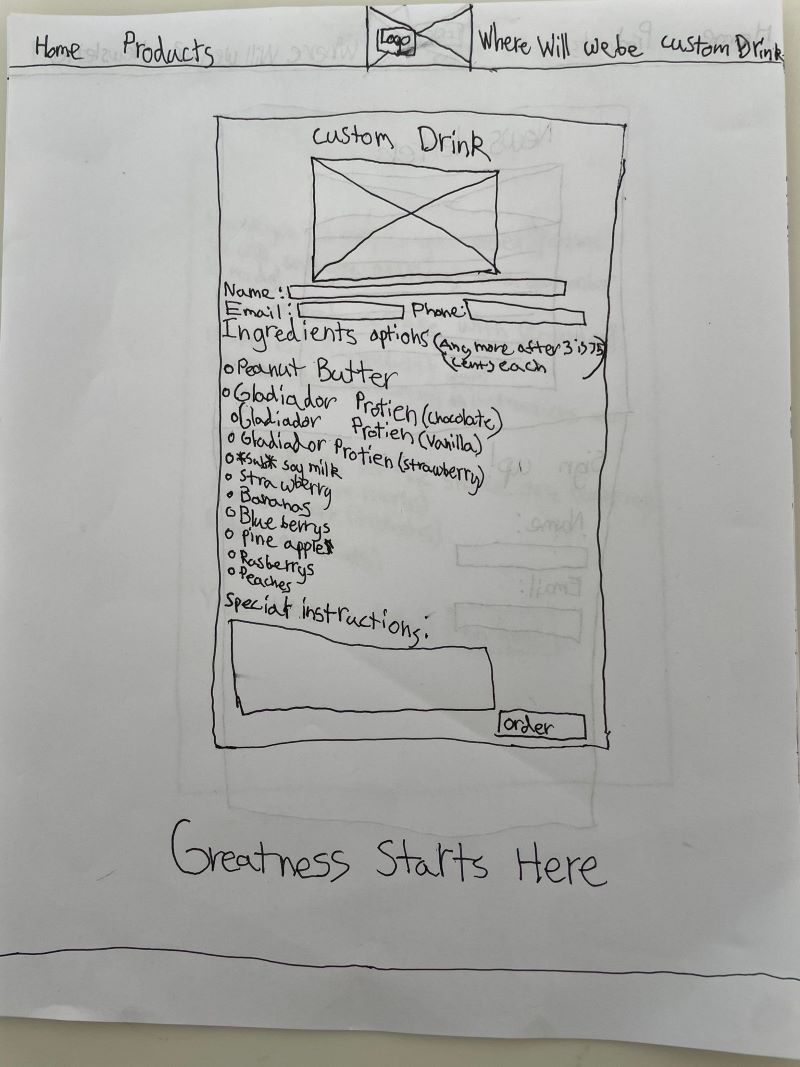 Home Products Logo Where Will we be custom Drink
Custom Drink
Name:
Email: Phone:
Ingredients options (Any more after 3 is 75
(cents) each)
Peanut Butter
Gladiador Protien (chocolate)
Gladiador Protien (Vanilla)
Gladiador Protien (strawberry)
*Sub* soy milk
Strawberry
Bananas
Blueberrys
Pine apple
Rasberrys
Peaches
Special instructions:
order
Greatness Starts Here